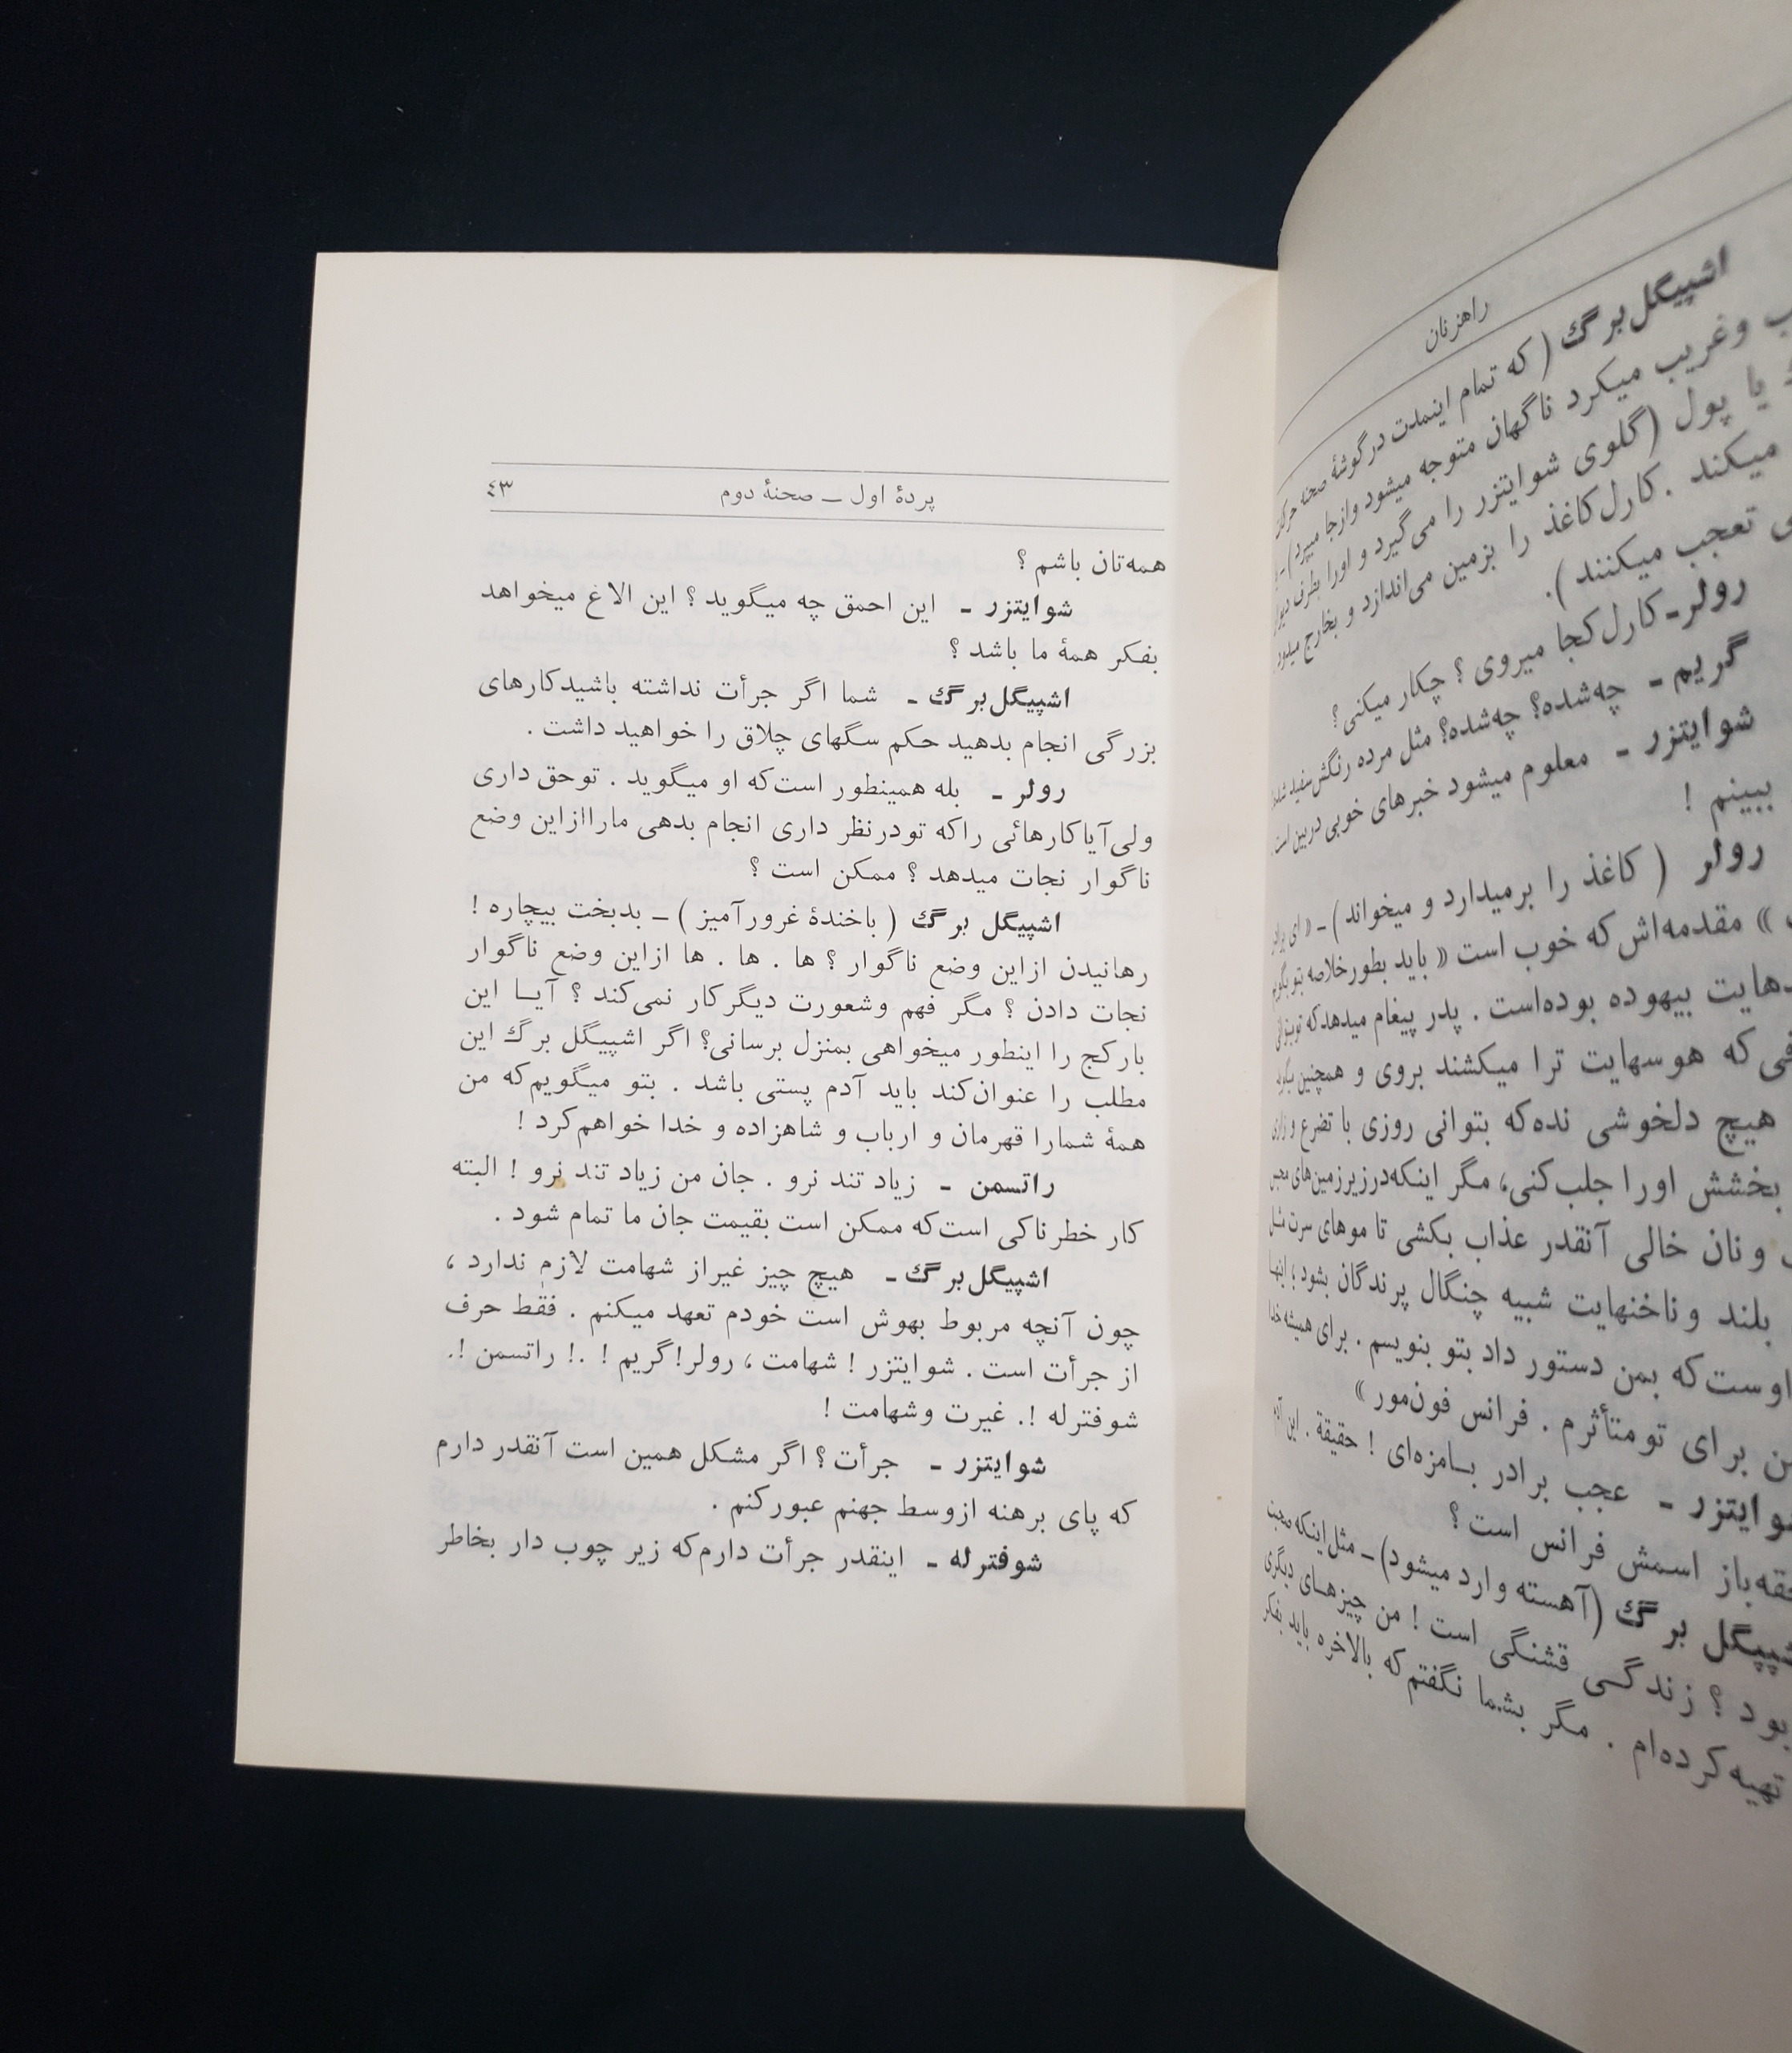 راهزنان
اشپیگل برگ ( که تمام اینمدت در گوشهٔ صحنه حرکات
وغریب میکرد ناگهان متوجه میشود وازجا میپرد ) -
یا پول (گلوی شوایتزر را می‌گیرد و اورا بطرف دیوار
میکند . کارل کاغذ را بزمین می‌اندازد و بخارج میدود
تعجب میکنند ).
رولر - کارل کجا میروی ؟ چکار میکنی ؟
گریم - چه‌شده؟ چه‌شده؟ مثل مرده رنگش سفید شده
شوایتزر - معلوم میشود خبرهای خوبی دربین است .
ببینم !
رولر ( کاغذ را برمیدارد و میخواند ) - « ای برادر
» مقدمه‌اش که خوب است « باید بطورخلاصه بتو بگویم
بیهوده بوده‌است . پدر پیغام میدهدکه
که هوسهایت ترا میکشند بروی و همچنین
هیچ دلخوشی نده‌که بتوانی روزی با تضرع و زاری
بخشش اورا جلب‌کنی، مگر اینکه‌درزیرزمین‌های
و نان خالی آنقدر عذاب بکشی تا موهای سرت مثل
بلند و ناخنهایت شبیه چنگال پرندگان بشود ؛ اینها
اوست‌که بمن دستور داد بتو بنویسم . برای همیشه
برای تو متأثرم . فرانس فون‌مور »
شوایتزر - عجب برادر بامزه‌ای ! حقیقة . این
اسمش فرانس است ؟
اشپیگل برگ (آهسته وارد میشود) - مثل‌اینکه صحبت
بود ؟ زندگی قشنگی است ! من چیزهای دیگری
تهیه‌کرده‌ام . مگر بشما نگفتم‌که بالاخره باید بفکر
پردهٔ اول — صحنهٔ دوم ٤٣
همه‌تان باشم ؟
شوایتزر - این احمق چه میگوید ؟ این الاغ میخواهد
بفکر همهٔ ما باشد ؟
اشپیگل برگ - شما اگر جرأت نداشته باشیدکارهای
بزرگی انجام بدهید حکم سگهای چلاق را خواهید داشت .
رولر - بله همینطور است‌که او میگوید . توحق داری
ولی‌آیاکارهائی راکه تودرنظر داری انجام بدهی ماراازاین وضع
ناگوار نجات میدهد ؟ ممکن است ؟
اشپیگل برگ ( باخندهٔ غرورآمیز ) — بدبخت بیچاره !
رهانیدن ازاین وضع ناگوار ؟ ها . ها . ها ازاین وضع ناگوار
نجات دادن ؟ مگر فهم وشعورت دیگرکار نمی‌کند ؟ آیا این
بارکج را اینطور میخواهی بمنزل برسانی؟ اگر اشپیگل برگ این
مطلب را عنوان‌کند باید آدم پستی باشد . بتو میگویم‌که من
همهٔ شمارا قهرمان و ارباب و شاهزاده و خدا خواهم‌کرد !
راتسمن - زیاد تند نرو . جان من زیاد تند نرو ! البته
کار خطرناکی است‌که ممکن است بقیمت جان ما تمام شود .
اشپیگل برگ - هیچ چیز غیراز شهامت لازم ندارد ،
چون آنچه مربوط بهوش است خودم تعهد میکنم . فقط حرف
از جرأت است . شوایتزر ! شهامت ، رولر!گریم ! .! راتسمن !.
شوفترله !. غیرت وشهامت !
شوایتزر - جرأت ؟ اگر مشکل همین است آنقدر دارم
که پای برهنه ازوسط جهنم عبورکنم .
شوفترله - اینقدر جرأت دارم‌که زیر چوب دار بخاطر